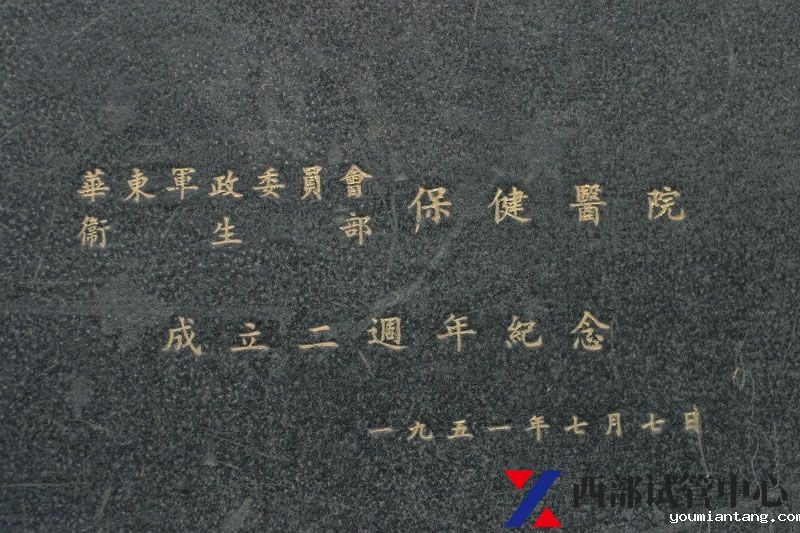 華東軍政委員會
衞生部
保健醫院
成立二週年紀念
一九五一年七月七日
西部试管中心
youmiantang.com